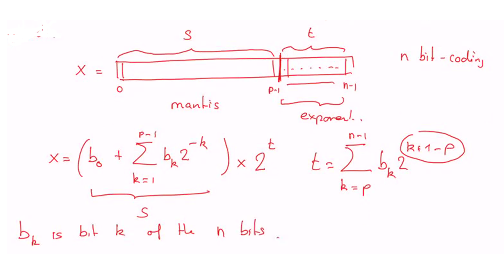 S t
x = n bit-coding
0 p-1 n-1
mantis exponent.
x = (b₀ + ∑ₖ₌₁ᵖ⁻¹ bₖ 2⁻ᵏ) × 2ᵗ t = ∑ₖ₌ₚⁿ⁻¹ bₖ 2ᵏ⁺¹⁻ᵖ
S
bₖ is bit k of the n bits.